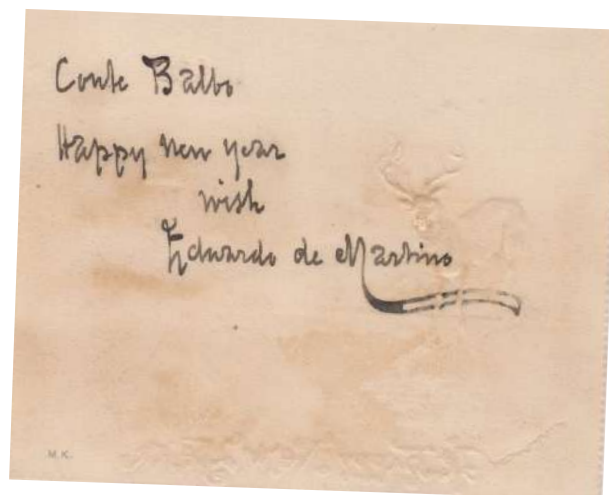 Conte Balbo
Happy new year
wish
Eduardo de Martino
M.K.